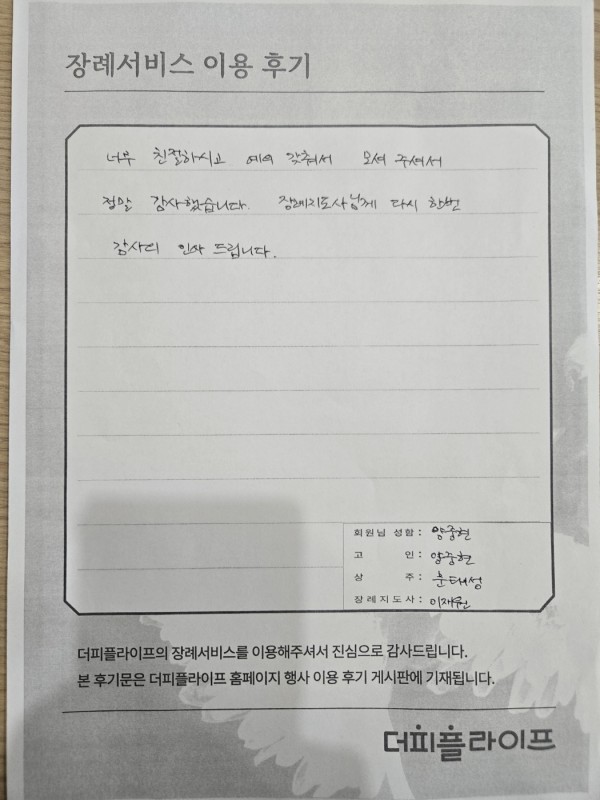 장례서비스 이용 후기
너무 친절하시고 예의 갖춰서 모셔 주셔서
정말 감사했습니다. 장례지도사님께 다시 한번
감사의 인사 드립니다.
회원님 성함: 양중현
고 인: 양중현
상 주: 훈태성
장례지도사: 이재원
더피플라이프의 장례서비스를 이용해주셔서 진심으로 감사드립니다.
본 후기문은 더피플라이프 홈페이지 행사 이용 후기 게시판에 기재됩니다.
더피플라이프